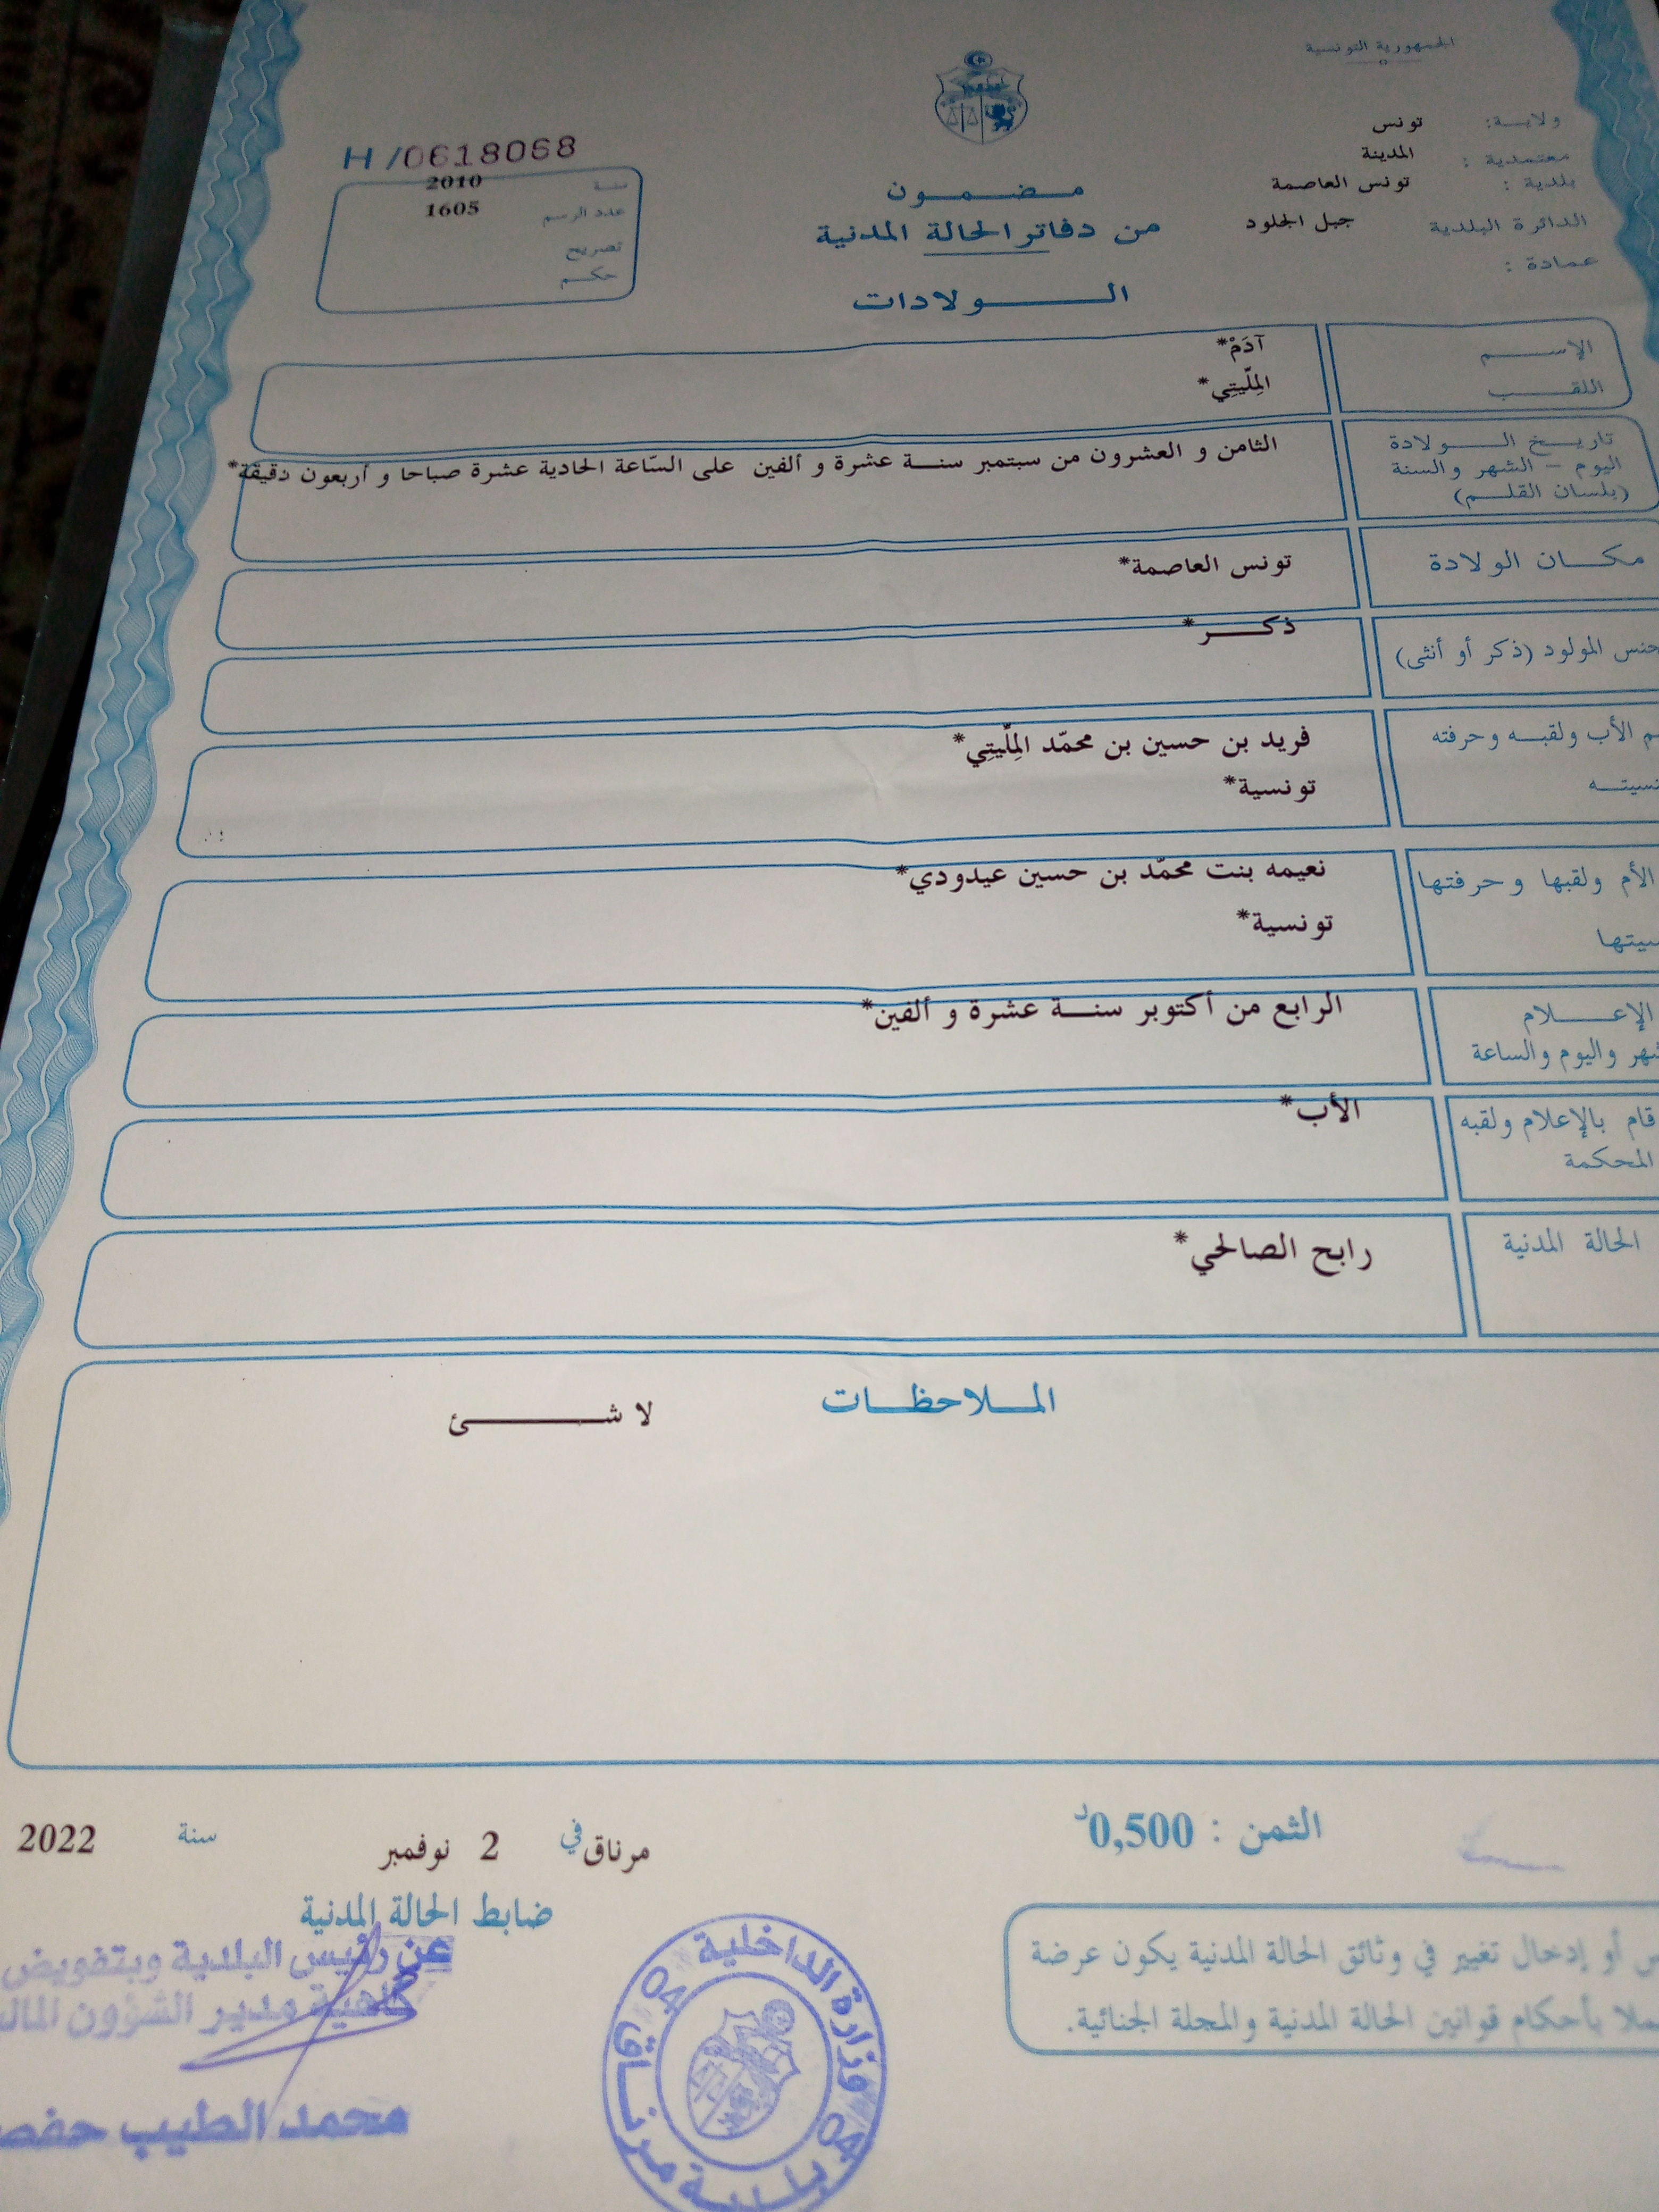 الجمهورية التونسية
ولايــة: تونس
معتمدية : المدينة
بلدية : تونس العاصمة
الدائرة البلدية جبل الجلود
عمادة :
H/0618068
سنة 2010
عدد الرسم 1605
تصريح
حكم
مضمون
من دفاتر الحالة المدنية
الولادات
الإسم آدَمْ*
اللقب المِلّيتِي*
تاريخ الولادة
اليوم - الشهر والسنة
(بلسان القلم)
الثامن و العشرون من سبتمبر سنة عشرة و ألفين على السّاعة الحادية عشرة صباحا و أربعون دقيقة*
مكان الولادة تونس العاصمة*
جنس المولود (ذكر أو أنثى) ذكر*
الأب ولقبه وحرفته فريد بن حسين بن محمّد المِلّيتِي*
تونسية*
الأم ولقبها وحرفتها نعيمه بنت محمّد بن حسين عيدودي*
تونسية*
الإعلام الرابع من أكتوبر سنة عشرة و ألفين*
واليوم والساعة
قام بالإعلام ولقبه الأب*
المحكمة
الحالة المدنية رابح الصالحي*
الملاحظات
لا شئ
الثمن : 0,500د
مرناق في 2 نوفمبر سنة 2022
ضابط الحالة المدنية
عن رئيس البلدية وبتفويض
كاهية مدير الشؤون
محمد الطيب
وزارة الداخلية
04 بلدية مرناق 04
أو إدخال تغيير في وثائق الحالة المدنية يكون عرضة
بأحكام قوانين الحالة المدنية والمجلة الجنائية.